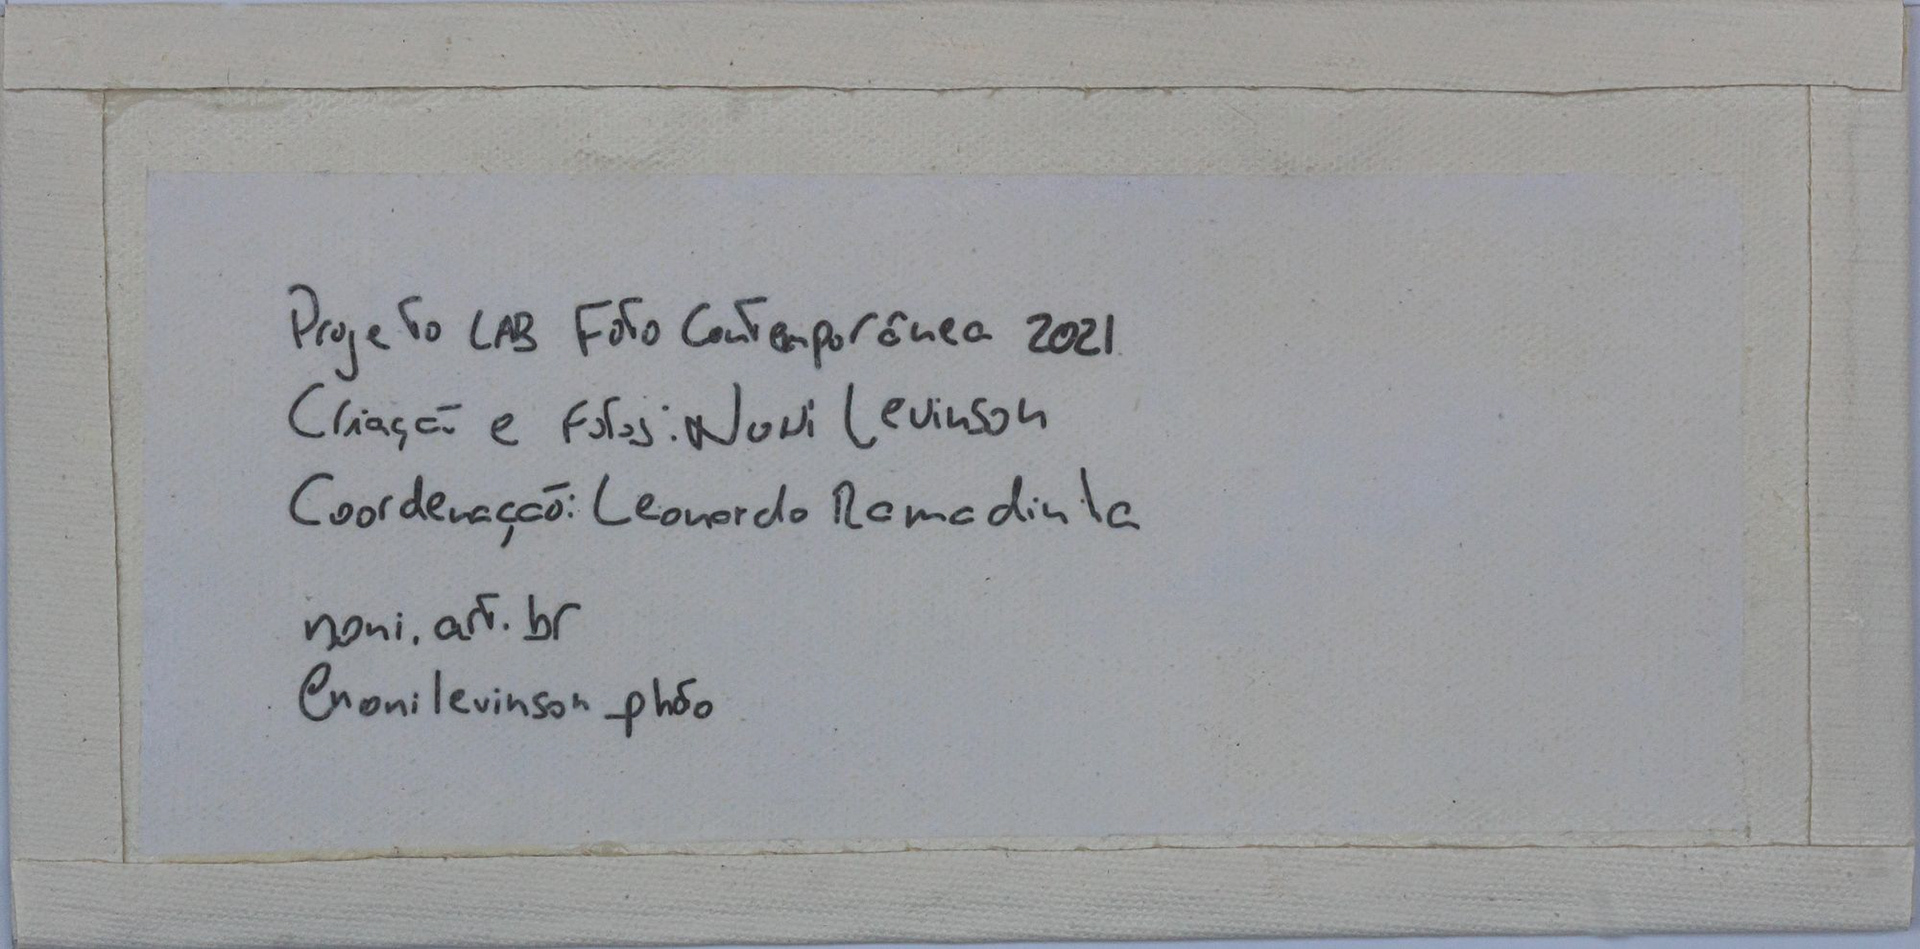 Projeto LAB Foto Contemporânea 2021
Criação e Fotos: Noni Levinson
Coordenação: Leonardo Ramadinha
noni.art.br
@nonilevinson_photo